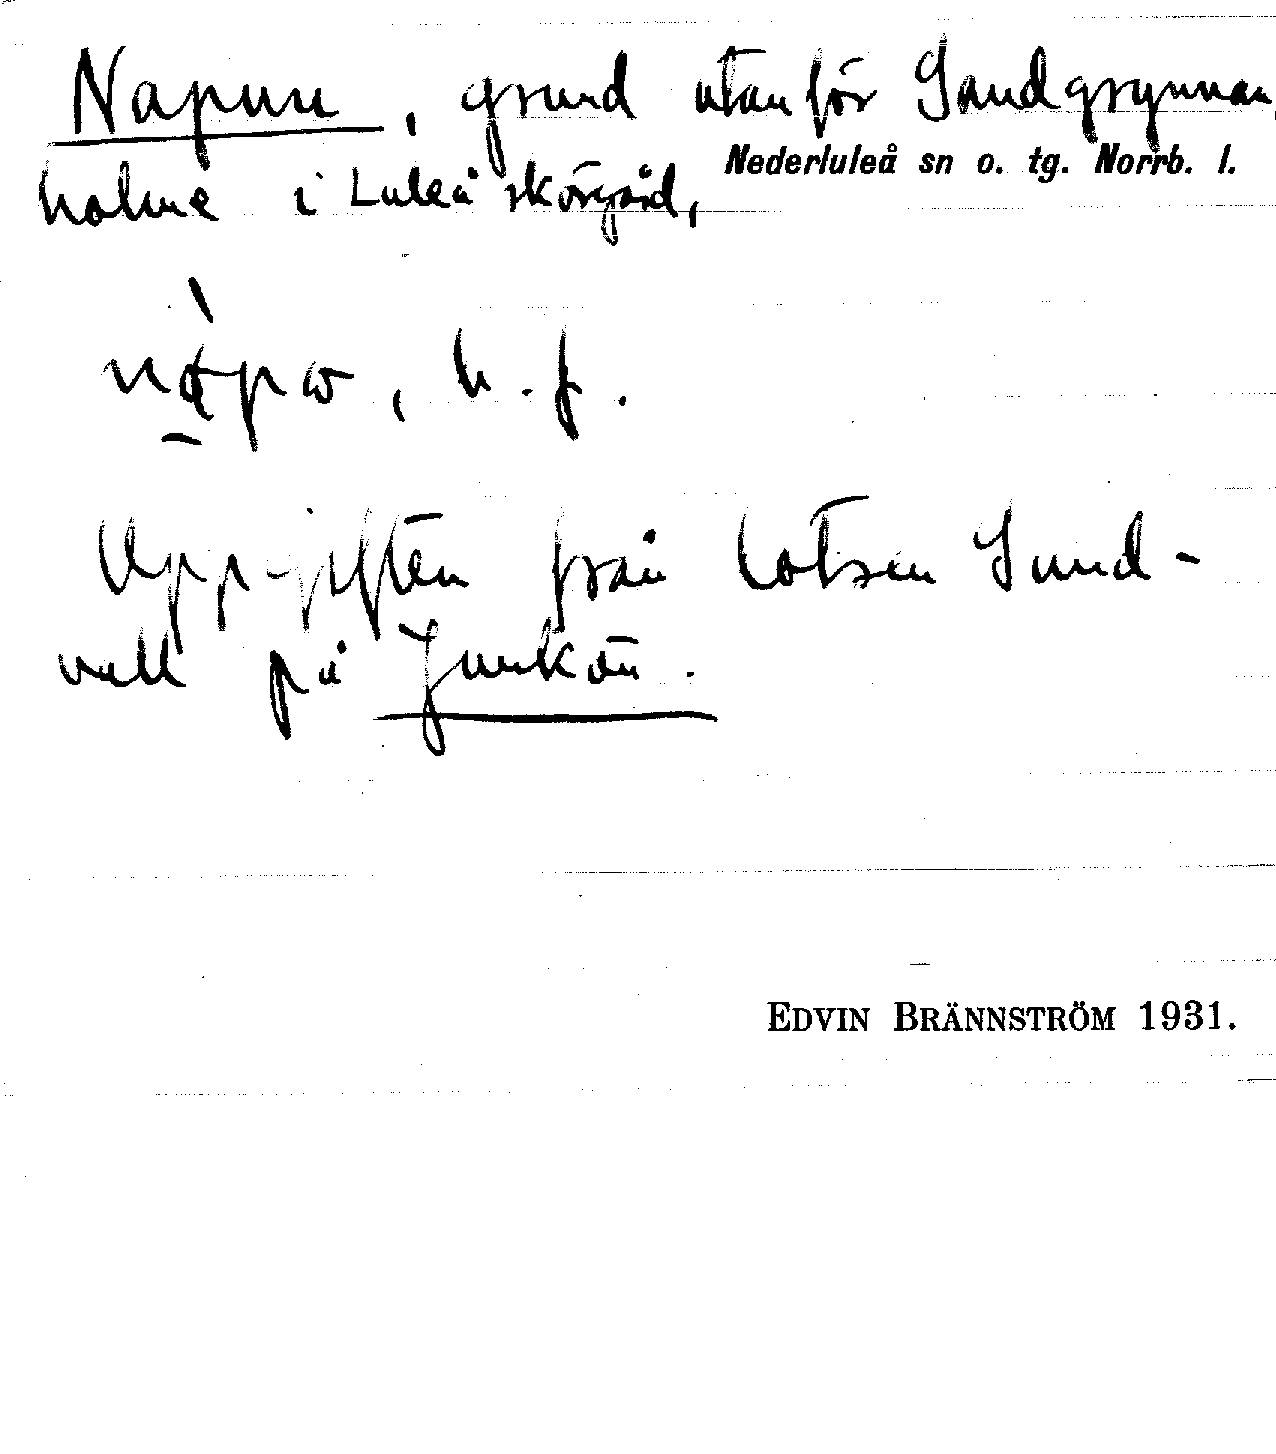 Napun, grund utanför Sandgrynnan,
Nederluleå sn o. tg. Norrb. l.
holme i Luleå skärgård,
n. f.
Uppgiften från lotsen Sund-
vall på Junkön.
EDVIN BRÄNNSTRÖM 1931.